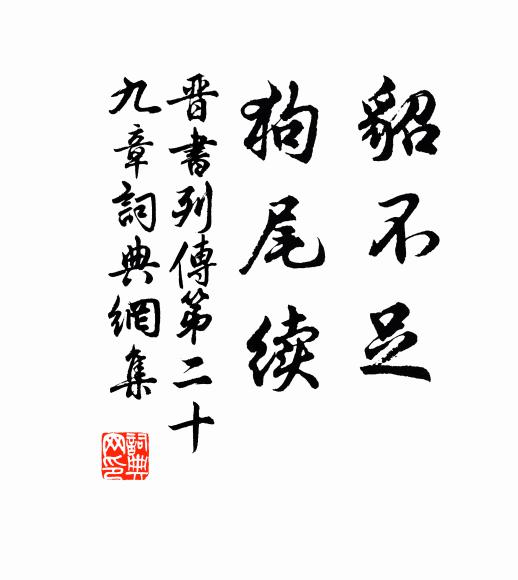 貂不足
狗尾续
晋書列傳第二十
九章詞典網集
詞典网印